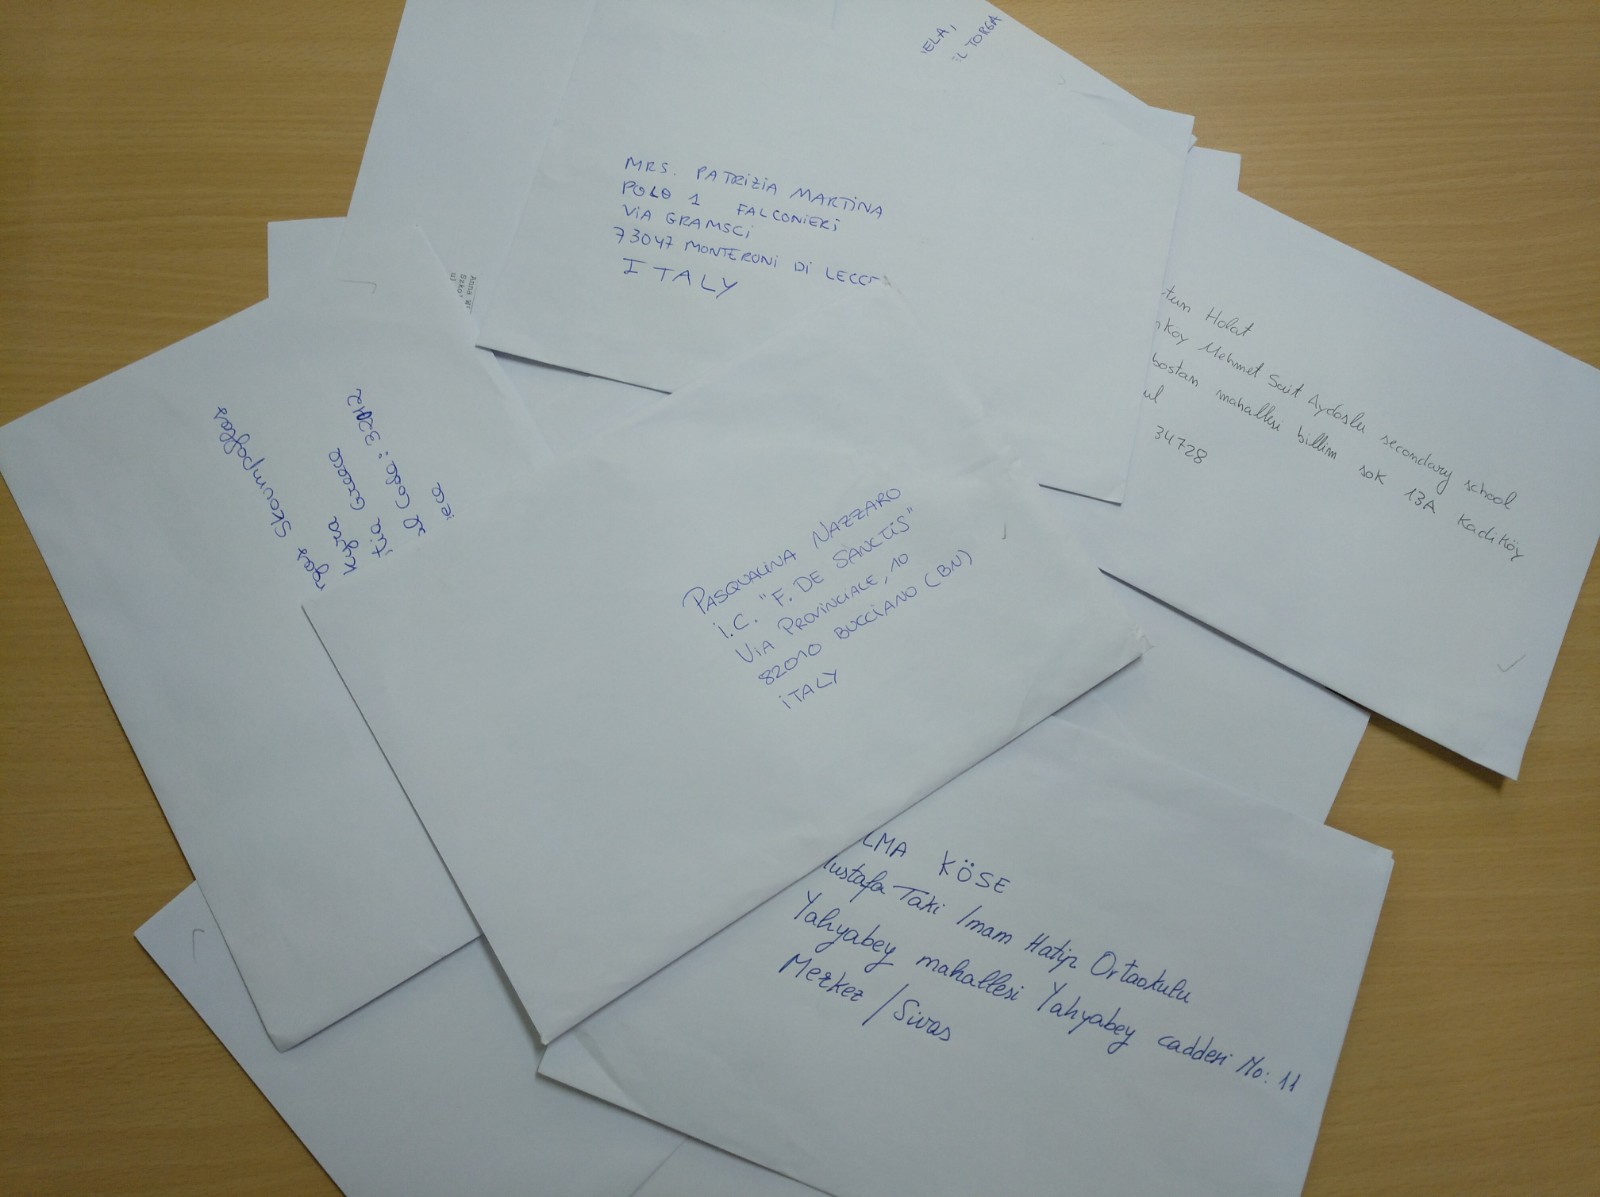 IELA,
IL TORGA
MRS. PATRIZIA MARTINA
POLO 1 FALCONIERI
VIA GRAMSCI
73047 MONTERONI DI LECCE
ITALY
Anna W
tum Holat
nkoy Mehmet Sait Aydoslu secondary school
bostan mahallesi billim sok 13A Kadıköy
ul
34728
rgas Skoumpaflas
Kyra
tia Greece
al Code: 32012
iece
PASQUALINA NAZZARO
I.C. "F. DE SANCTIS"
VIA PROVINCIALE, 10
82010 BUCCIANO (BN)
ITALY
LMA KÖSE
Mustafa Taki İmam Hatip Ortaokulu
Yahyabey mahallesi Yahyabey caddesi No: 11
Merkez / Sivas